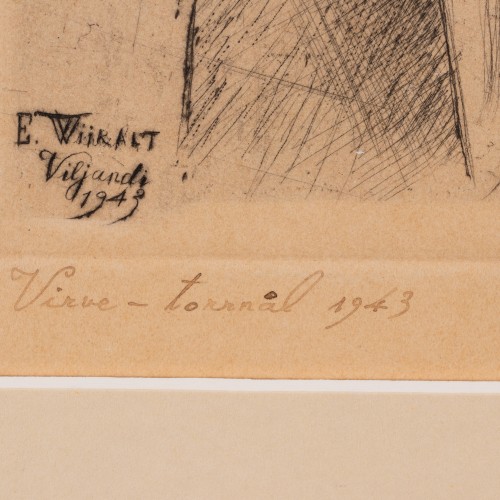 E. Wiiralt
Viljandi
1943
Virve – torrnål 1943